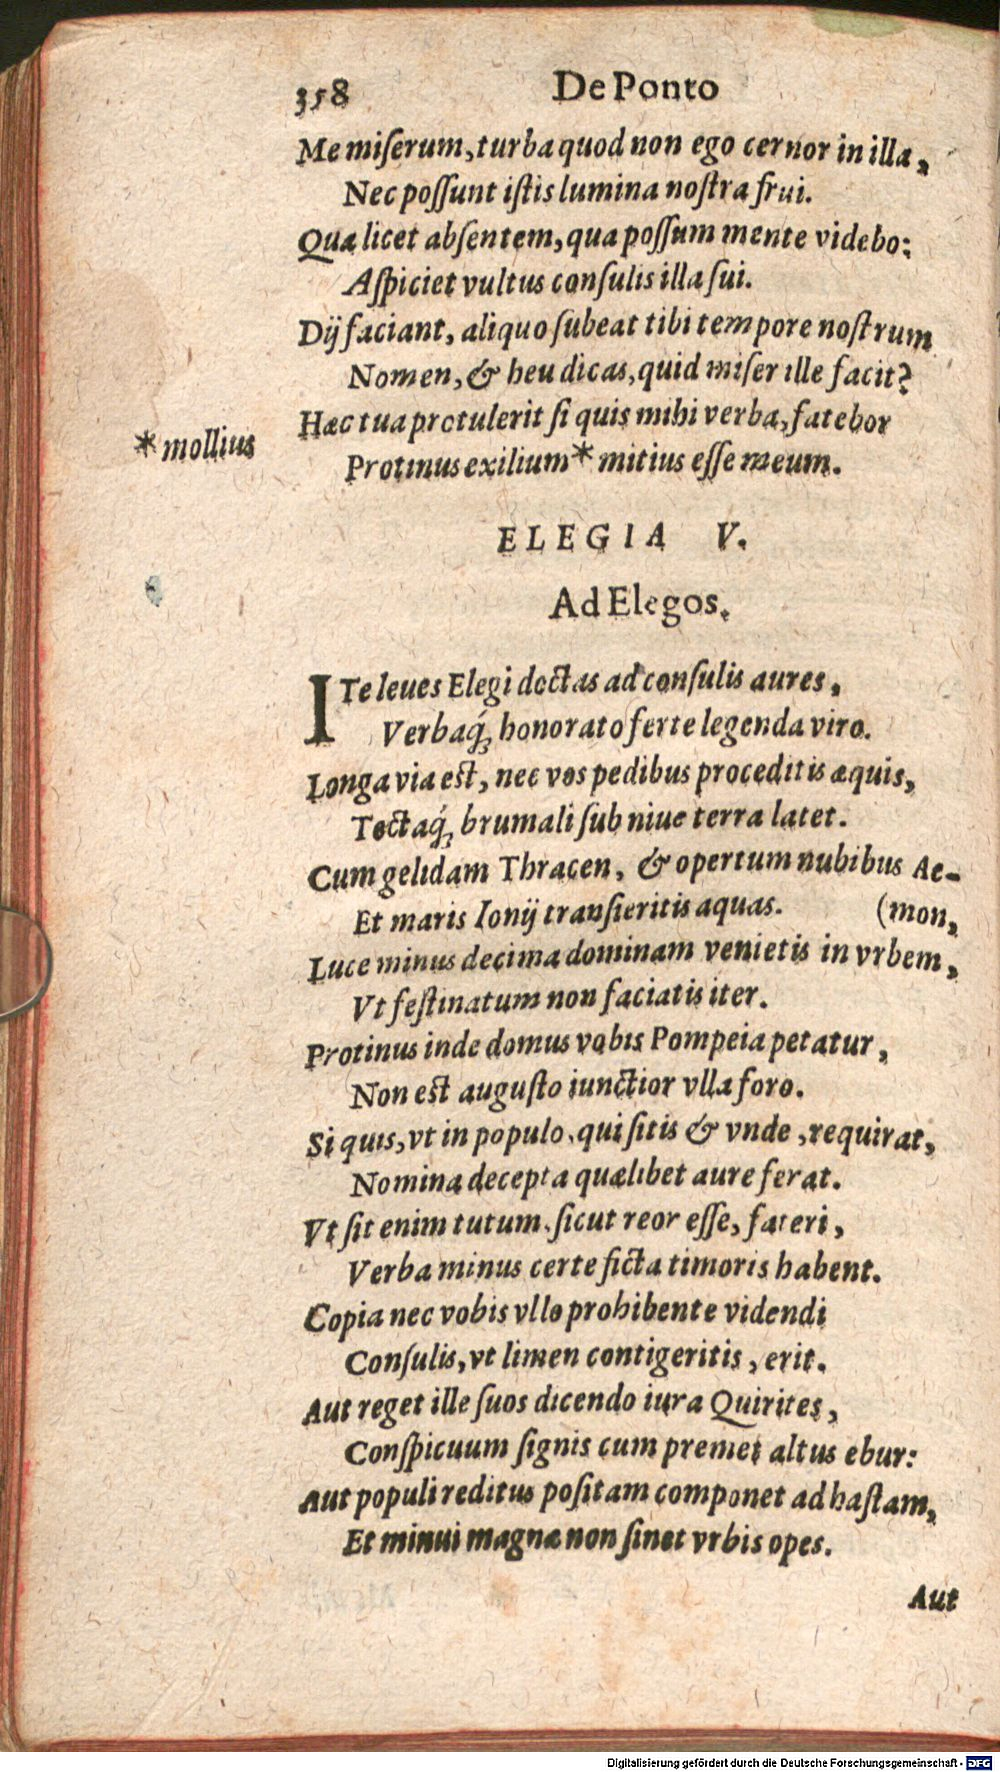 358 De Ponto
Me miserum, turba quod non ego cernor in illa,
Nec possunt istis lumina nostra frui.
Qua licet absentem, qua possum mente videbo:
Aspiciet vultus consulis illa sui.
Dij faciant, aliquo subeat tibi tempore nostrum
Nomen, & heu dicas, quid miser ille facit?
Hæc tua protulerit si quis mihi verba, fatebor
*mollius
Protinus exilium* mitius esse meum.
ELEGIA V.
Ad Elegos.
ITe leues Elegi doctas ad consulis aures,
Verbaq́; honorato ferte legenda viro.
Longa via est, nec vos pedibus proceditis æquis,
Tectaq́; brumali sub niue terra latet.
Cum gelidam Thracen, & opertum nubibus Ae-
Et maris Ionij transieritis aquas. (mon,
Luce minus decima dominam venietis in vrbem,
Vt festinatum non faciatis iter.
Protinus inde domus vobis Pompeia petatur,
Non est augusto iunctior vlla foro.
Si quis, vt in populo, qui sitis & vnde, requirat,
Nomina decepta quælibet aure ferat.
Vt sit enim tutum, sicut reor esse, fateri,
Verba minus certe ficta timoris habent.
Copia nec vobis vllo prohibente videndi
Consulis, vt limen contigeritis, erit.
Aut reget ille suos dicendo iura Quirites,
Conspicuum signis cum premet altus ebur:
Aut populi reditus positam componet ad hastam,
Et minui magnæ non sinet vrbis opes.
Aut
Digitalisierung gefördert durch die Deutsche Forschungsgemeinschaft - DFG